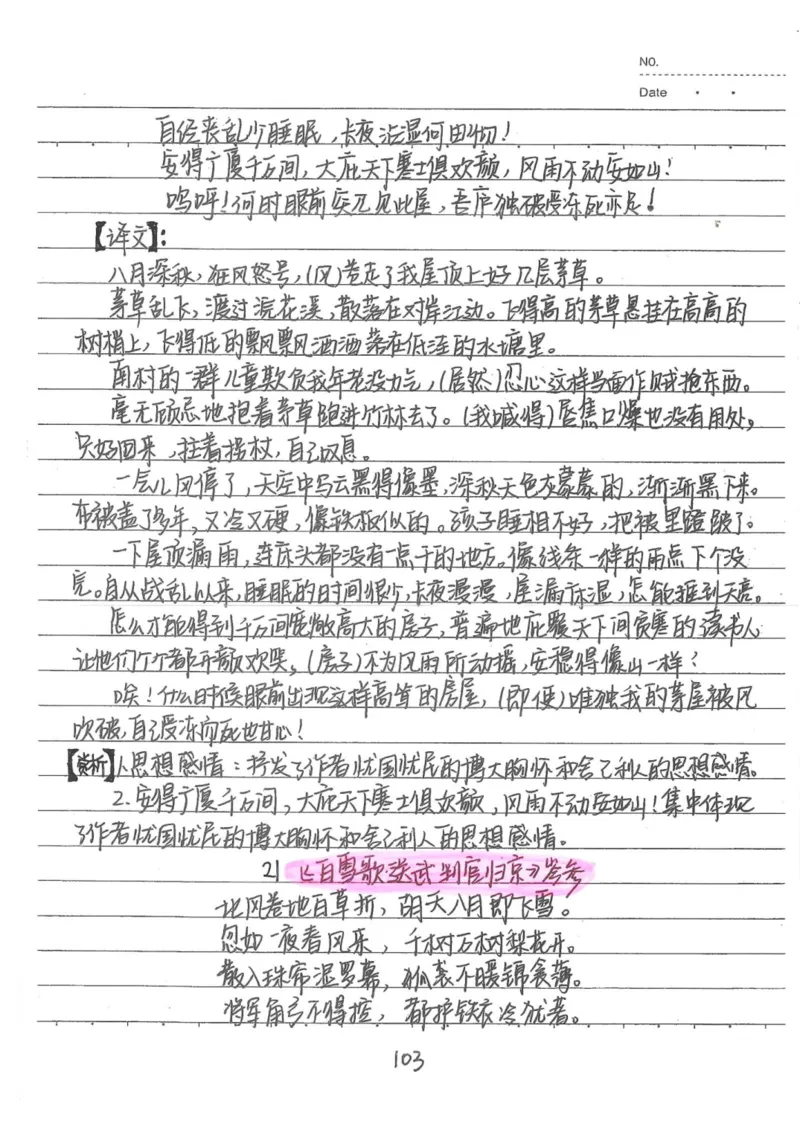 NO.
Date
自经丧乱少睡眠，长夜沾湿何由彻！
安得广厦千万间，大庇天下寒士俱欢颜，风雨不动安如山！
呜呼！何时眼前突兀见此屋，吾庐独破受冻死亦足！
【译文】：
八月深秋，狂风怒号，(风)卷走了我屋顶上好几层茅草。
茅草乱飞，渡过浣花溪，散落在对岸江边。飞得高的茅草悬挂在高高的
树梢上，飞得低的飘飘洒洒落在低洼的水塘里。
南村的一群儿童欺负我年老没力气，(居然)忍心这样当面作贼抢东西。
毫无顾忌地抱着茅草跑进竹林去了。(我喊得)唇焦口燥也没有用处，
只好回来，拄着拐杖，自己叹息。
一会儿风停了，天空中乌云黑得像墨，深秋天色灰蒙蒙的，渐渐黑下来。
布被盖了多年，又冷又硬，像铁板似的。孩子睡相不好，把被里蹬破了。
一下屋顶漏雨，连床头都没有一点干的地方。像线条一样的雨点下个没
完。自从战乱以来，睡眠的时间很少，长夜漫漫，屋漏床湿，怎能挨到天亮。
怎么才能得到千万间宽敞高大的房子，普遍地庇覆天下间贫寒的读书人
让他们个个都开颜欢笑，(房子)不为风雨所动摇，安稳得像山一样？
唉！什么时候眼前出现这样高耸的房屋，(即使)唯独我的茅屋被风
吹破，自己受冻而死也甘心！
【赏析】1.思想感情：抒发了作者忧国忧民的博大胸怀和舍己利人的思想感情。
2.安得广厦千万间，大庇天下寒士俱欢颜，风雨不动安如山！集中体现
了作者忧国忧民的博大胸怀和舍己利人的思想感情。
21 《白雪歌送武判官归京》岑参
北风卷地百草折，胡天八月即飞雪。
忽如一夜春风来，千树万树梨花开。
散入珠帘湿罗幕，狐裘不暖锦衾薄。
将军角弓不得控，都护铁衣冷犹著。
103